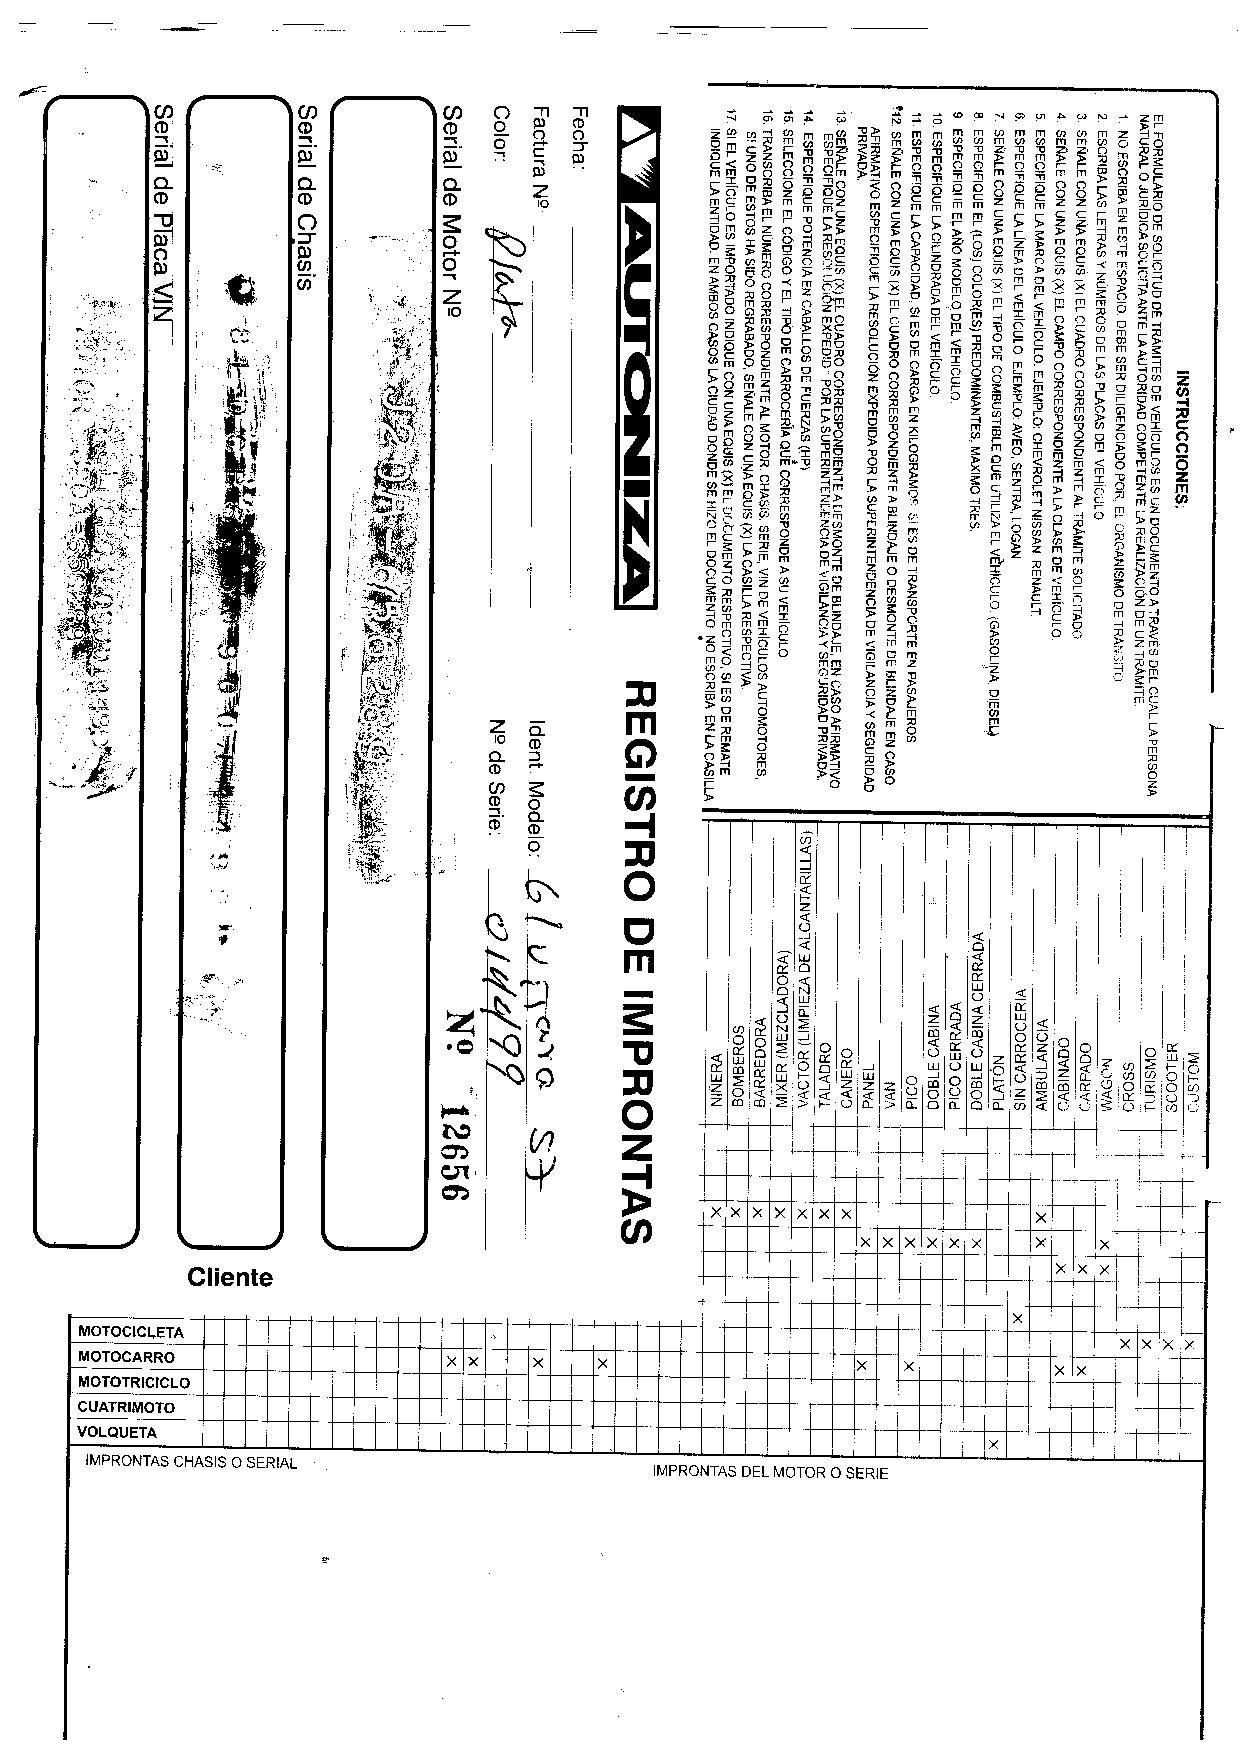 INSTRUCCIONES:
EL FORMULARIO DE SOLICITUD DE TRÁMITES DE VEHÍCULOS ES UN DOCUMENTO A TRAVÉS DEL CUAL LA PERSONA
NATURAL O JURIDICA SOLICITA ANTE LA AUTORIDAD COMPETENTE LA REALIZACIÓN DE UN TRÁMITE
1. NO ESCRIBA EN ESTE ESPACIO, DEBE SER DILIGENCIADO POR EL ORGANISMO DE TRANSITO
2. ESCRIBA LAS LETRAS Y NÚMEROS DE LAS PLACAS DEL VEHÍCULO
3. SEÑALE CON UNA EQUIS (X) EL CUADRO CORRESPONDIENTE AL TRÁMITE SOLICITADO
4. SEÑALE CON UNA EQUIS (X) EL CAMPO CORRESPONDIENTE A LA CLASE DE VEHÍCULO.
5. ESPECIFIQUE LA MARCA DEL VEHÍCULO. EJEMPLO: CHEVROLET NISSAN RENAULT.
6. ESPECIFIQUE LA LÍNEA DEL VEHÍCULO. EJEMPLO: AVEO, SENTRA, LOGAN
7. SEÑALE CON UNA EQUIS (X) EL TIPO DE COMBUSTIBLE QUE UTILIZA EL VEHÍCULO, (GASOLINA, DIESEL)
8. ESPECIFIQUE EL (LOS) COLOR(ES) PREDOMINANTES, MAXIMO TRES.
9 ESPECIFIQUE EL AÑO MODELO DEL VEHÍCULO.
10. ESPECIFIQUE LA CILINDRADA DEL VEHÍCULO.
11. ESPECIFIQUE LA CAPACIDAD, SI ES DE CARGA EN KILOGRAMOS SI ES DE TRANSPORTE EN PASAJEROS
12. SEÑALE CON UNA EQUIS (X) EL CUADRO CORRESPONDIENTE A BLINDAJE O DESMONTE DE BLINDAJE EN CASO
AFIRMATIVO ESPECIFIQUE LA RESOLUCIÓN EXPEDIDA POR LA SUPERINTENDENCIA DE VIGILANCIA Y SEGURIDAD
PRIVADA.
13. SEÑALE CON UNA EQUIS (X) EL CUADRO CORRESPONDIENTE A DESMONTE DE BLINDAJE, EN CASO AFIRMATIVO
ESPECIFIQUE LA RESOLUCIÓN EXPEDIDA POR LA SUPERINTENDENCIA DE VIGILANCIA Y SEGURIDAD PRIVADA.
14. ESPECIFIQUE POTENCIA EN CABALLOS DE FUERZAS (HP)
15. SELECCIONE EL CODIGO Y EL TIPO DE CARROCERÍA QUE CORRESPONDE A SU VEHÍCULO
16. TRANSCRIBA EL NÚMERO CORRESPONDIENTE AL MOTOR, CHASIS, SERIE, VIN DE VEHÍCULOS AUTOMOTORES,
SI UNO DE ESTOS HA SIDO REGRABADO, SEÑALE CON UNA EQUIS (X) LA CASILLA RESPECTIVA
17. SI EL VEHÍCULO ES IMPORTADO INDIQUE CON UNA EQUIS (X) EL DOCUMENTO RESPECTIVO, SI ES DE REMATE
INDIQUE LA ENTIDAD. EN AMBOS CASOS LA CIUDAD DONDE SE HIZO EL DOCUMENTO. NO ESCRIBA EN LA CASILLA
CUSTOM X
SCOOTER X
TURISMO X
CROSS X
WAGON X X
CARPADO X X
CABINADO X X
AMBULANCIA X X
SIN CARROCERIA X
PLATÓN X
DOBLE CABINA CERRADA X
PICO CERRADA X
DOBLE CABINA X
PICO X X
VAN X
PANEL X X
CANERO X
TALADRO X
VACTOR (LIMPIEZA DE ALCANTARILLAS) X
MIXER (MEZCLADORA) X
BARREDORA X
BOMBEROS X
NIÑERA X
AUTONIZA REGISTRO DE IMPRONTAS
Fecha:
Factura Nº Ident. Modelo: G/Vitara S7
Color: Plata Nº de Serie: 014499
Serial de Motor Nº Nº. 12656
Serial de Chasis
Serial de Placa VIN
Cliente
MOTOCICLETA
MOTOCARRO X X X X
MOTOTRICICLO
CUATRIMOTO
VOLQUETA
IMPRONTAS CHASIS O SERIAL
IMPRONTAS DEL MOTOR O SERIE